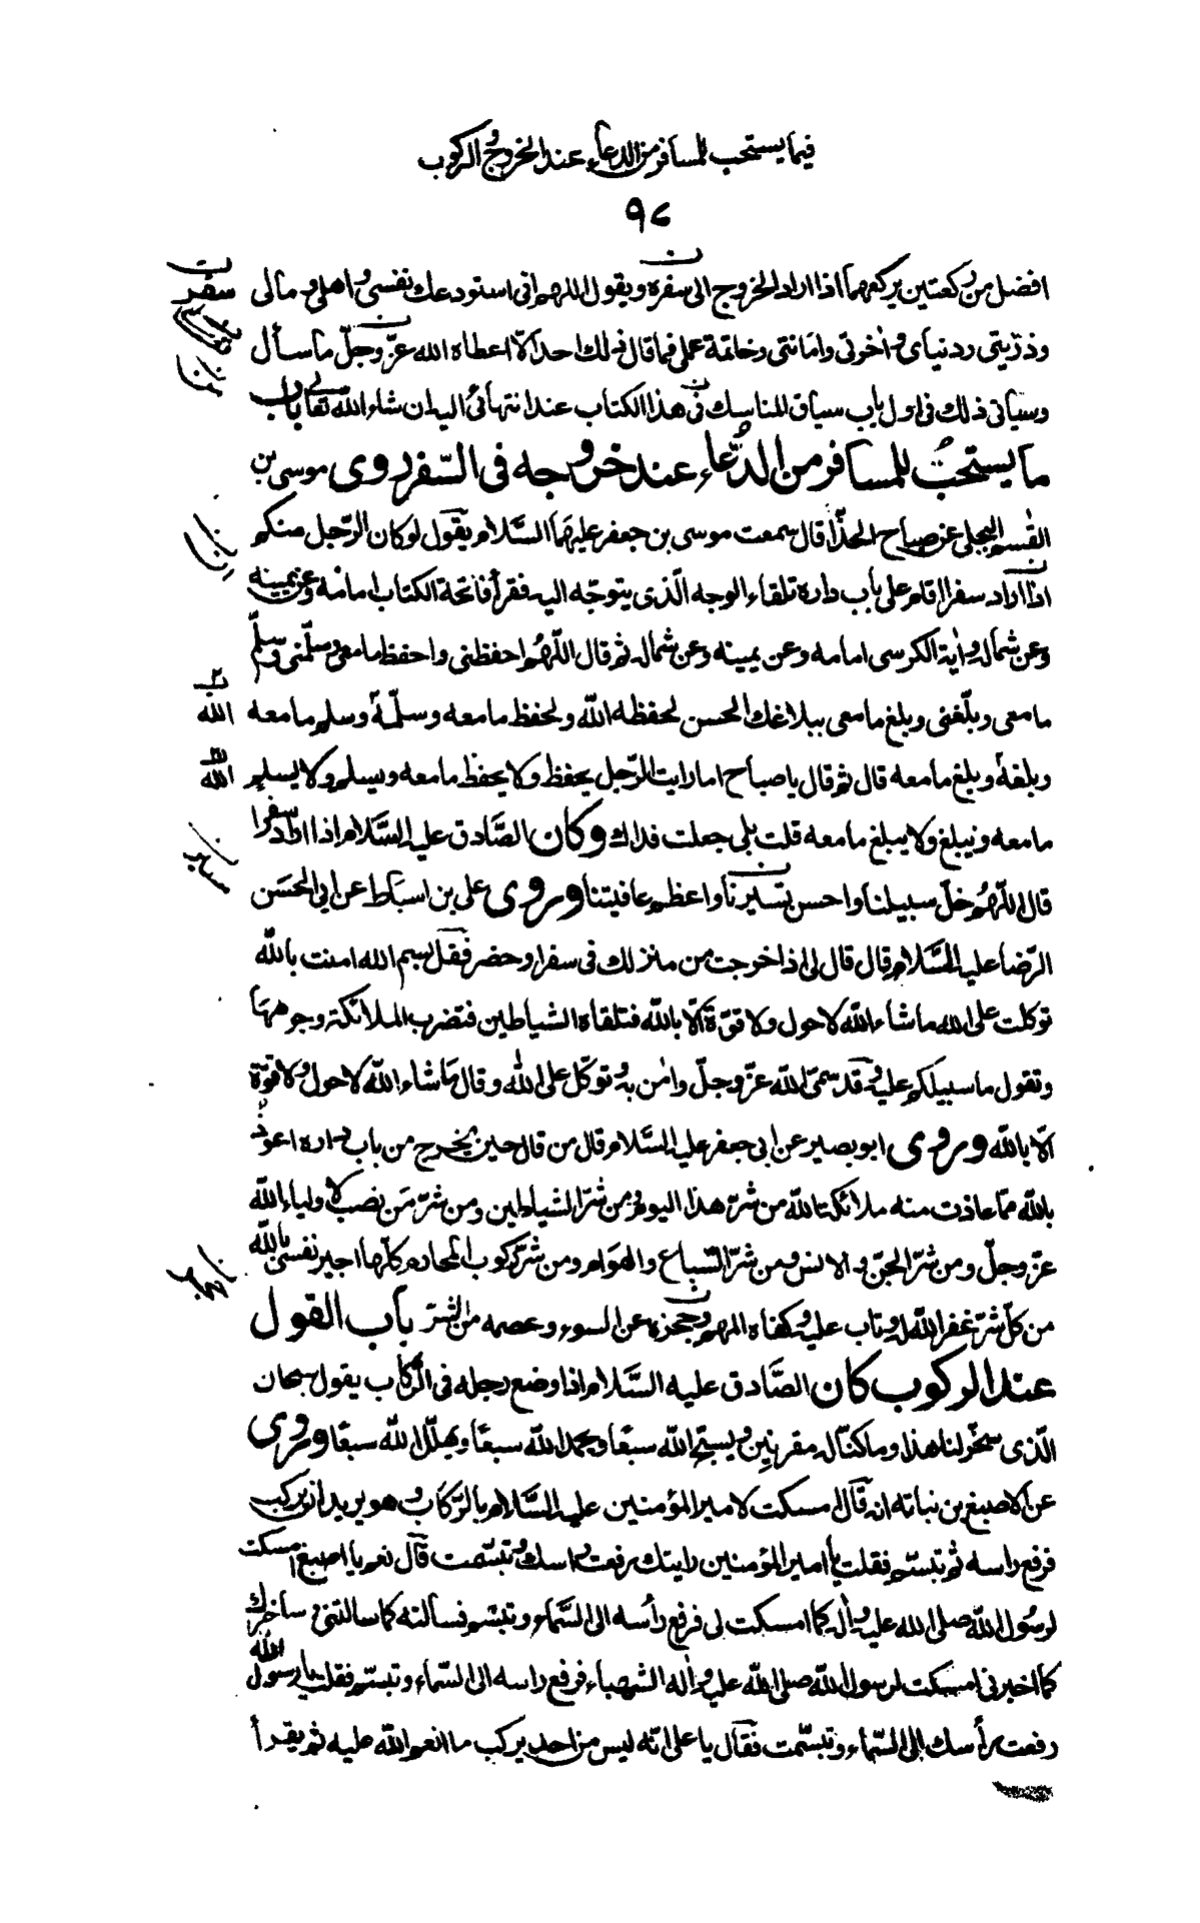 فيما يستحب للمسافر من الدعاء عند الخروج و الركوب
٩٧
افضل من ركعتين يركعهما اذا اراد الخروج الى سفره ويقول اللهم انى استودعك نفسى و اهلى و مالى
وذرّيتى ودنياى و اخرتى وامانتى وخاتمة عملى فما قال ذلك احد الّا اعطاه الله عزّ وجلّ ما سأل
وسياتى ذلك فى اول باب سياق المناسك فى هذا الكتاب عند انتهائى اليه ان شاء الله تعالى باب
ما يستحبّ للمسافر من الدّعاء عند خروجه فى السّفر روى موسى بن
القٰسم البجلى عن صباح الحذّا قال سمعت موسى بن جعفر عليهما السَّلام يقول لو كان الرّجل منكم
اذا اراد سفرا اقام على باب داره تلقاء الوجه الّذى يتوجّه اليه فقرأ فاتحة الكتاب امامه وعن يمينه
وعن شماله و اية الكرسى امامه وعن يمينه وعن شماله ثم قال اللّهمّ احفظنى واحفظ ما معى وسلّمنى وسلّم
ما معى وبلّغنى وبلغ ما معى ببلاغك الحسن لحفظه اللّه ولحفظ ما معه وسلّمه وسلم ما معه الله
وبلغه وبلغ ما معه قال ثم قال يا صباح اما رايت الرّجل يحفظ ولا يحفظ ما معه ويسلم ولا يسلم الله
ما معه ويبلغ ولا يبلغ ما معه قلت بلى جعلت فداك وكان الصَّادق عليه السَّلام اذا اراد سفرا
قال اللّهمّ خلّ سبيلنا واحسن تسيرنا واعظم عافيتنا وروى على بن اسباط عن ابى الحسَن
الرّضا عليه السَّلام قال قال لى اذا خرجت من منزلك فى سفر او حضر فقل بسم الله امنت باللّه
توكلت على الله ما شاء اللّه لا حول ولا قوّة الّا باللّه فتلقاه الشياطين فتضرب الملائكة وجوهها
وتقول ما سبيلكم عليه و قد سمّى اللّه عزّ وجلّ وامن به و توكّل على اللّه وقال ما شاء اللّه لا حول ولا قوّة
الّا باللّه وروى ابو بصير عن ابى جعفر عليه السَّلام قال من قال حين يخرج من باب داره اعوذ
باللّه ممّا عاذت منه ملائكة اللّه من شرّ هذا اليوم و من شرّ الشياطين ومن شرّ مَن نصب لاولياء اللّه
عزّ وجلّ ومن شرّ الجنّ و الانس و من شرّ السّباع والهوام ومن شرّ ركوب المحارم كلّها اجير نفسى باللّه
من كلّ شرّ غفر اللّه له و تاب عليه و كفاه المهم و حجزه عن السوء وعصمه من الشرّ باب القول
عند الركوب كان الصَّادق عليه السَّلام اذا وضع رجله فى الرّكاب يقول سبحان
الّذى سخّر لنا هذا وما كنّا له مقرنين و يسبّح اللّه سبعًا ويحمد اللّه سبعًا ويهلّل اللّه سبعًا وروى
عن الاصبغ بن نباته انه قال امسكت لامير المؤمنين عليه السَّلام بالرّكاب و هو يريد ان يركب
فرفع راسه ثم تبسّم فقلت يا امير المؤمنين رايتك رفعت راسك و تبسّمت قال نعم يا اصبغ امسكت
لرسُول اللّه صلى الله عليه و اله كما امسكت لى فرفع رأسه الى السَّماء وتبسّم فسألته كما سالتنى و ساخبرك
كما اخبرنى امسكت لرسول اللّه صلى اللّه عليه و اله الشهباء فرفع راسه الى السّماء وتبسّم فقلت يا رسول اللّه
رفعت رأسك الى السّماء و تبسّمت فقال يا على انّه ليس من احد يركب ما انعم اللّه عليه ثم يقرأ